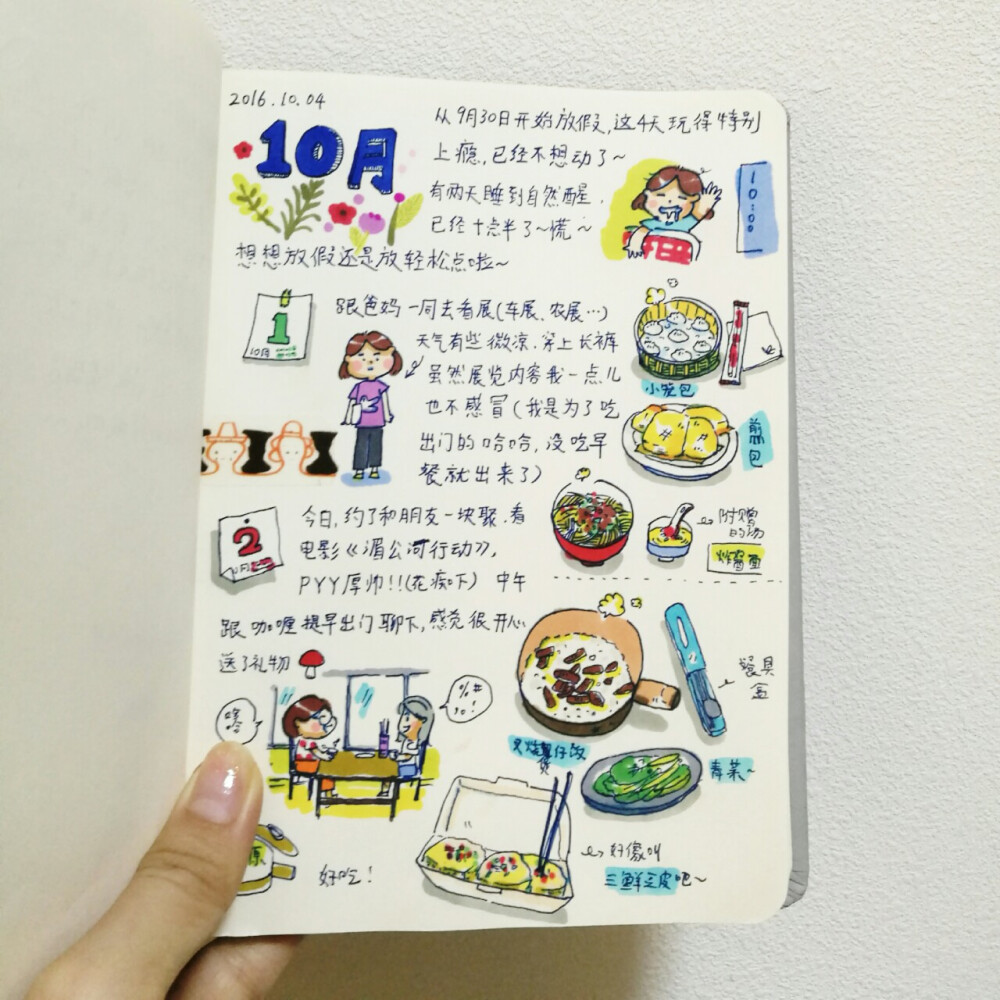 2016.10.04
10月
从9月30日开始放假,这4天玩得特别
上瘾,已经不想动了~
有两天睡到自然醒,
已经十点半了~慌~
10:00
想想放假还是放轻松点啦~
1
10月
跟爸妈一同去看展(车展、农展…)
天气有些微凉,穿上长裤
虽然展览内容我一点儿
也不感冒(我是为了吃
出门的哈哈,没吃早
餐就出来了)
小笼包
煎包
附赠
的汤
炸酱面
2
今日,约了和朋友一块聚,看
电影《湄公河行动》,
PYY厚帅!!(花痴下) 中午
跟咖喱提早出门聊下,感觉很开心
送了礼物
哈哈
%#
?o!
餐具
盒
叉烧煲仔饭
青菜~
原
好吃!
好像叫
三鲜豆皮吧~